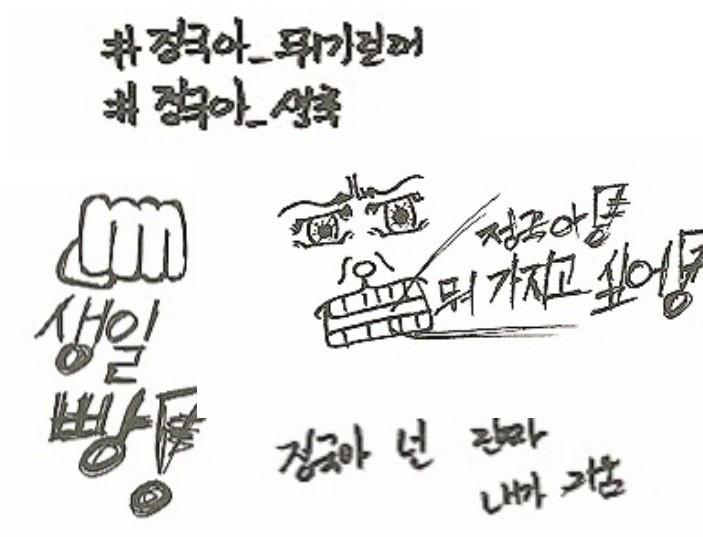 #정국아_튀기릴러
#정국아_생축
생일
빵!
정국아!
뭐 가지고 싶어!
정국아 넌
내가